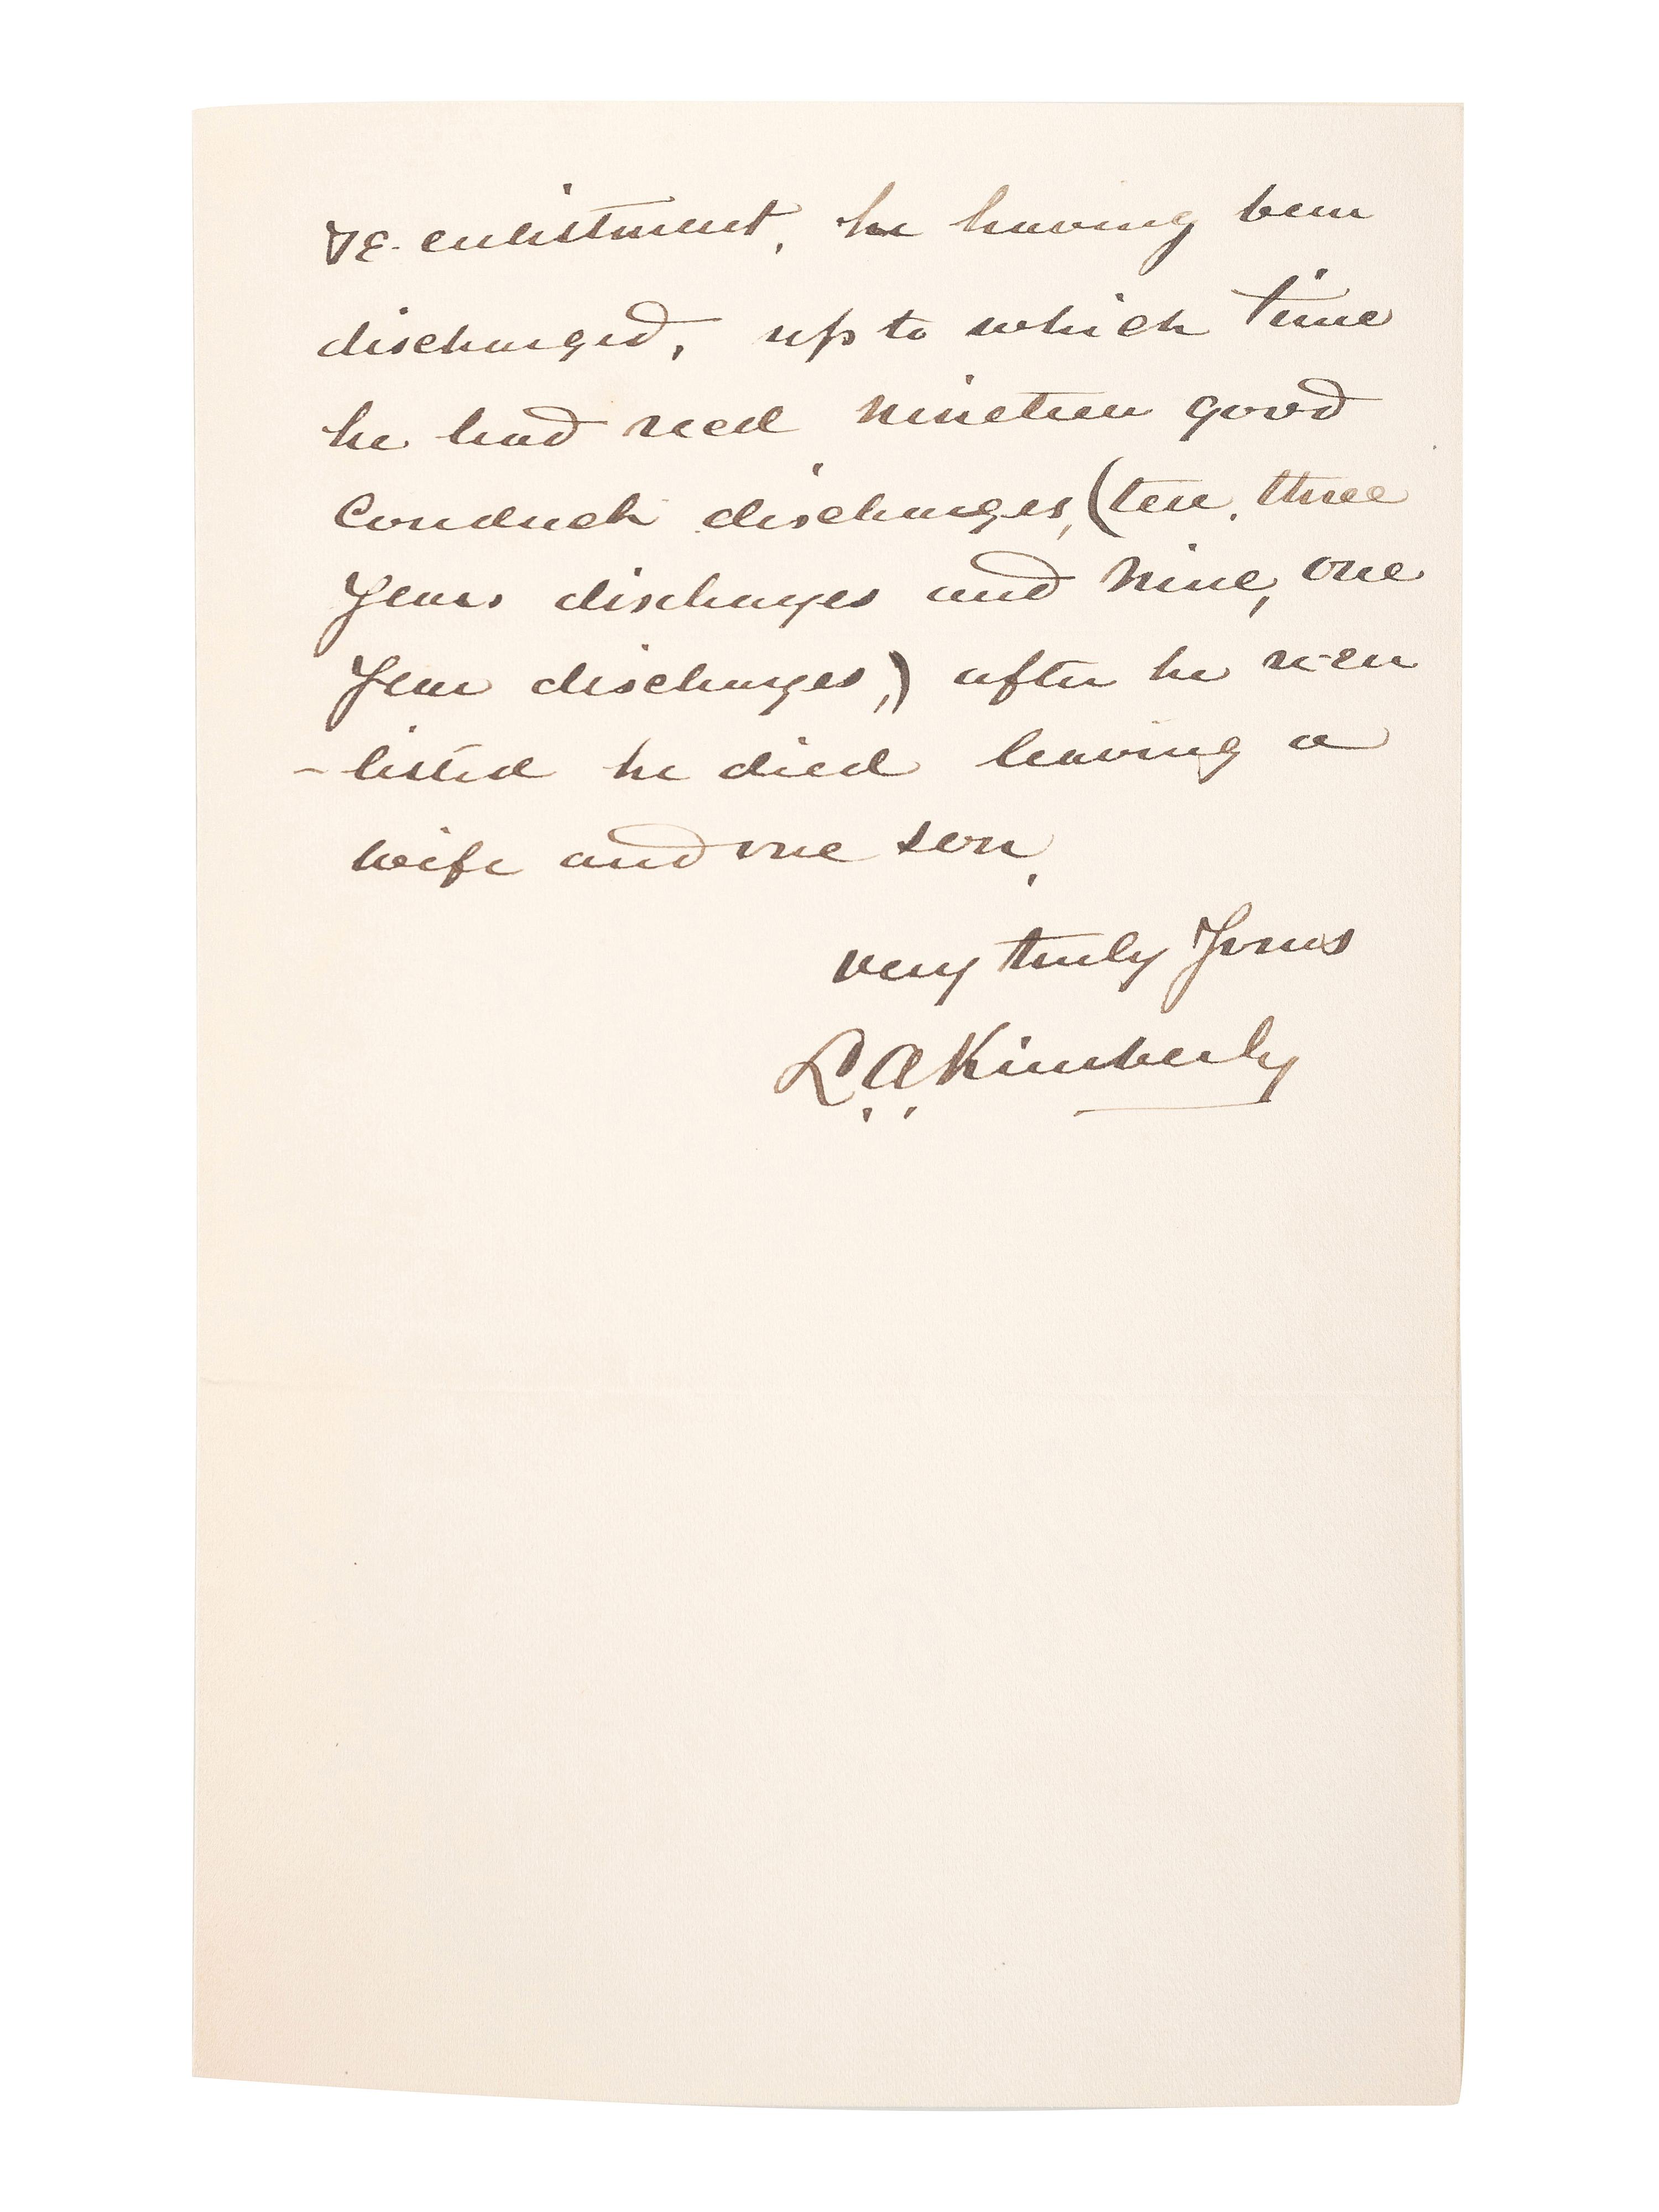 re-enlistment, he having been
discharged, up to which time
he had recd nineteen good
Conduct discharges, (ten, three
Years discharges and nine, one
Year discharges,) after he reen
-listed he died leaving a
wife and one son,
very truly Yours
L. A. Kimberly